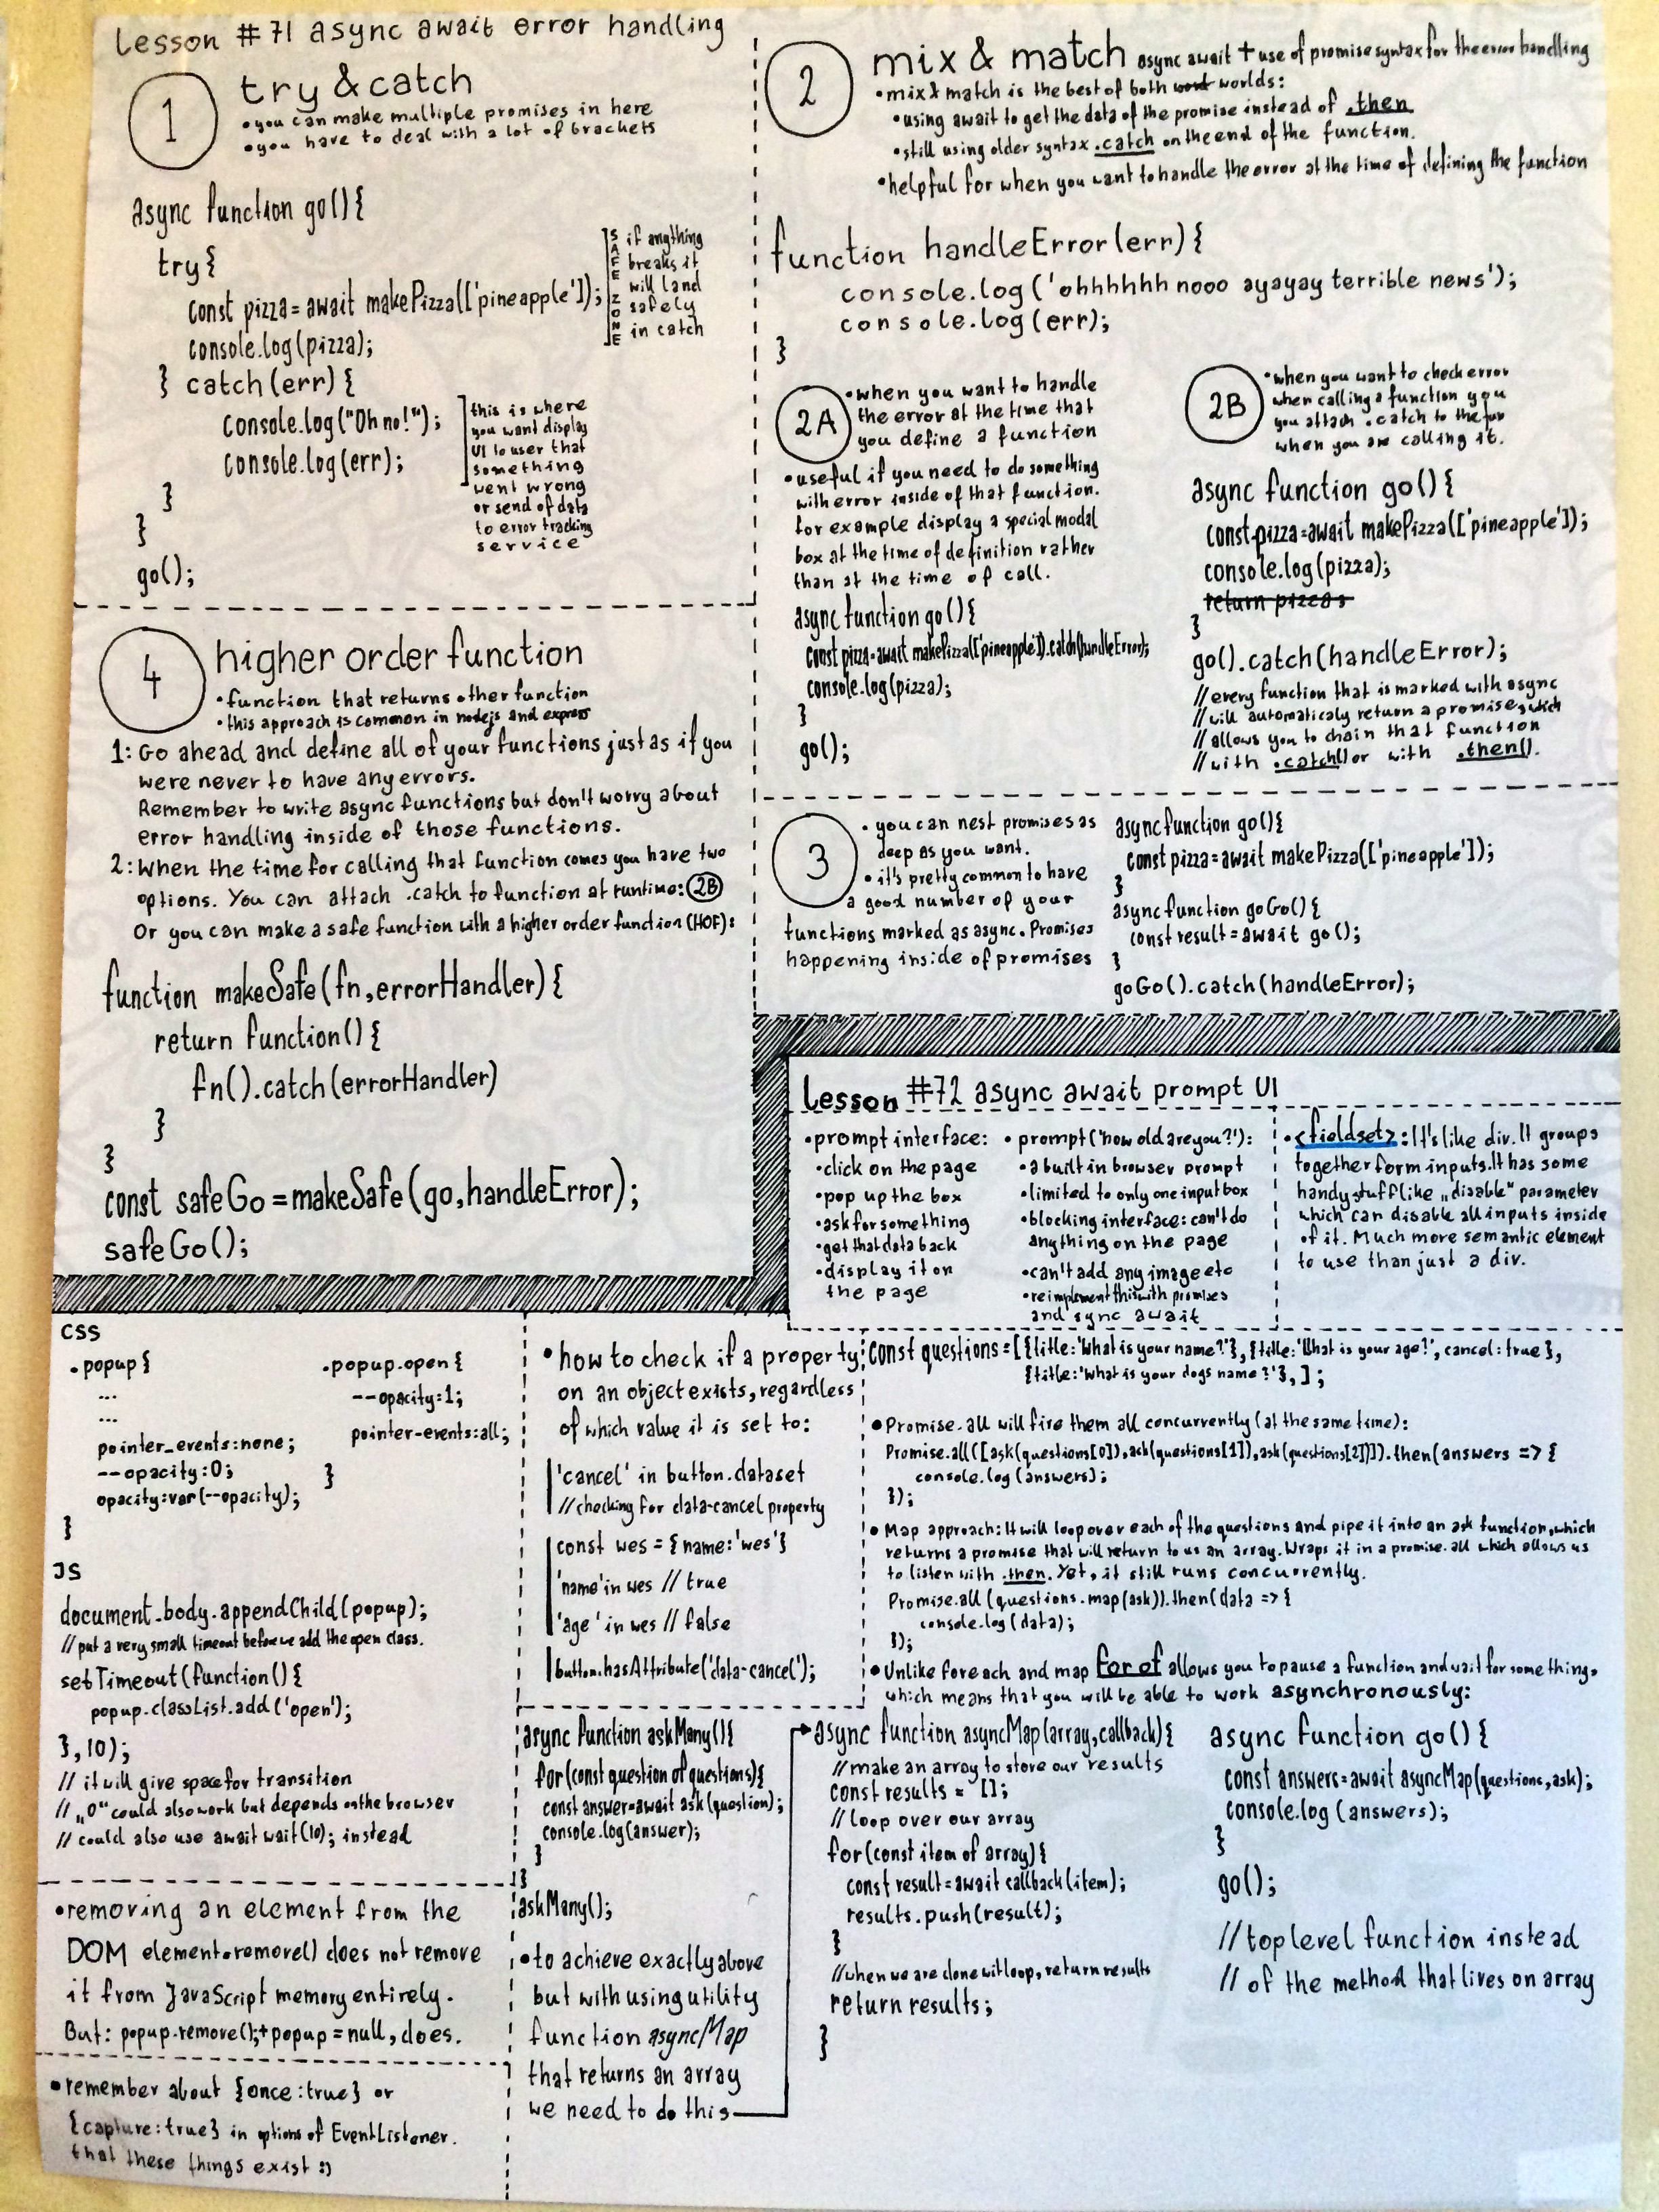 Lesson #71 async await error handling
1
try & catch
•you can make multiple promises in here
•you have to deal with a lot of brackets
async function go(){
try{
const pizza= await makePizza(['pineapple']);
console.log(pizza);
} catch(err){
console.log("Oh no!");
console.log(err);
}
}
go();
SAFE ZONE
if anything
breaks it
will land
safely
in catch
this is where
you want display
UI to user that
something
went wrong
or send of data
to error tracking
service
2
mix & match async await + use of promise syntax for the error handling
•mix & match is the best of both worlds:
•using await to get the data of the promise instead of .then
•still using older syntax .catch on the end of the function.
•helpful for when you want to handle the error at the time of defining the function
function handleError(err){
console.log('ohhhhhh nooo ayayay terrible news');
console.log(err);
}
2A
•when you want to handle
the error at the time that
you define a function
•useful if you need to do something
with error inside of that function.
for example display a special modal
box at the time of definition rather
than at the time of call.
async function go(){
const pizza=await makePizza(['pineapple']).catch(handleError);
console.log(pizza);
}
go();
2B
•when you want to check error
when calling a function you
attach .catch to the fun
when you are calling it.
async function go(){
const pizza=await makePizza(['pineapple']);
console.log(pizza);
return pizzas
}
go().catch(handleError);
//every function that is marked with async
//will automaticaly return a promise, which
//allows you to chain that function
//with .catch() or with .then().
3
•you can nest promises as
deep as you want.
•it's pretty common to have
a good number of your
functions marked as async. Promises
happening inside of promises
async function go(){
const pizza=await makePizza(['pineapple']);
}
async function goGo(){
const result=await go();
}
goGo().catch(handleError);
4
higher order function
•function that returns other function
•this approach is common in nodejs and express
1: Go ahead and define all of your functions just as if you
were never to have any errors.
Remember to write async functions but don't worry about
error handling inside of those functions.
2: When the time for calling that function comes you have two
options. You can attach .catch to function at runtime: 2B
Or you can make a safe function with a higher order function (HOF):
function makeSafe(fn,errorHandler){
return function(){
fn().catch(errorHandler)
}
}
const safeGo=makeSafe(go,handleError);
safeGo();
Lesson #72 async await prompt UI
•prompt interface:
•click on the page
•pop up the box
•ask for something
•get that data back
•display it on
the page
•prompt('how old are you?'):
•a built in browser prompt
•limited to only one input box
•blocking interface: can't do
anything on the page
•can't add any image etc
•reimplement this with promises
and sync await
•<fieldset>: It's like div. It groups
together form inputs. It has some
handy stuff like „disable" parameter
which can disable all inputs inside
of it. Much more semantic element
to use than just a div.
CSS
.popup{
...
...
pointer_events:none;
--opacity:0;
opacity:var(--opacity);
}
.popup.open{
--opacity:1;
pointer-events:all;
}
JS
document.body.appendChild(popup);
//put a very small timeout before we add the open class.
setTimeout(function(){
popup.classList.add('open');
},10);
// it will give space for transition
// „0" could also work but depends on the browser
// could also use await wait(10); instead
•removing an element from the
DOM element.remove() does not remove
it from JavaScript memory entirely.
But: popup.remove();+popup=null, does.
•remember about {once:true} or
{capture:true} in options of EventListener.
that these things exist :)
•how to check if a property
on an object exists, regardless
of which value it is set to:
'cancel' in button.dataset
//checking for data-cancel property
const wes={name:'wes'}
'name' in wes // true
'age' in wes // false
button.hasAttribute('data-cancel');
const questions=[{title:'What is your name?'}, {title:'What is your age?', cancel:true},
{title:'What is your dogs name?'},];
•Promise.all will fire them all concurrently (at the same time):
Promise.all([ask(questions[0]),ask(questions[1]),ask(questions[2])]).then(answers => {
console.log(answers);
});
•Map approach: It will loop over each of the questions and pipe it into an ask function, which
returns a promise that will return to us an array. Wraps it in a promise.all which allows us
to listen with .then. Yet, it still runs concurrently.
Promise.all(questions.map(ask)).then(data => {
console.log(data);
});
•Unlike foreach and map for of allows you to pause a function and wait for something,
which means that you will be able to work asynchronously:
async function askMany(){
for(const question of questions){
const answer=await ask(question);
console.log(answer);
}
}
askMany();
•to achieve exactly above
but with using utility
function asyncMap
that returns an array
we need to do this
async function asyncMap(array,callback){
//make an array to store our results
const results = [];
// loop over our array
for(const item of array){
const result=await callback(item);
results.push(result);
}
//when we are done wit loop, return results
return results;
}
async function go(){
const answers=await asyncMap(questions,ask);
console.log(answers);
}
go();
//top level function instead
// of the method that lives on array